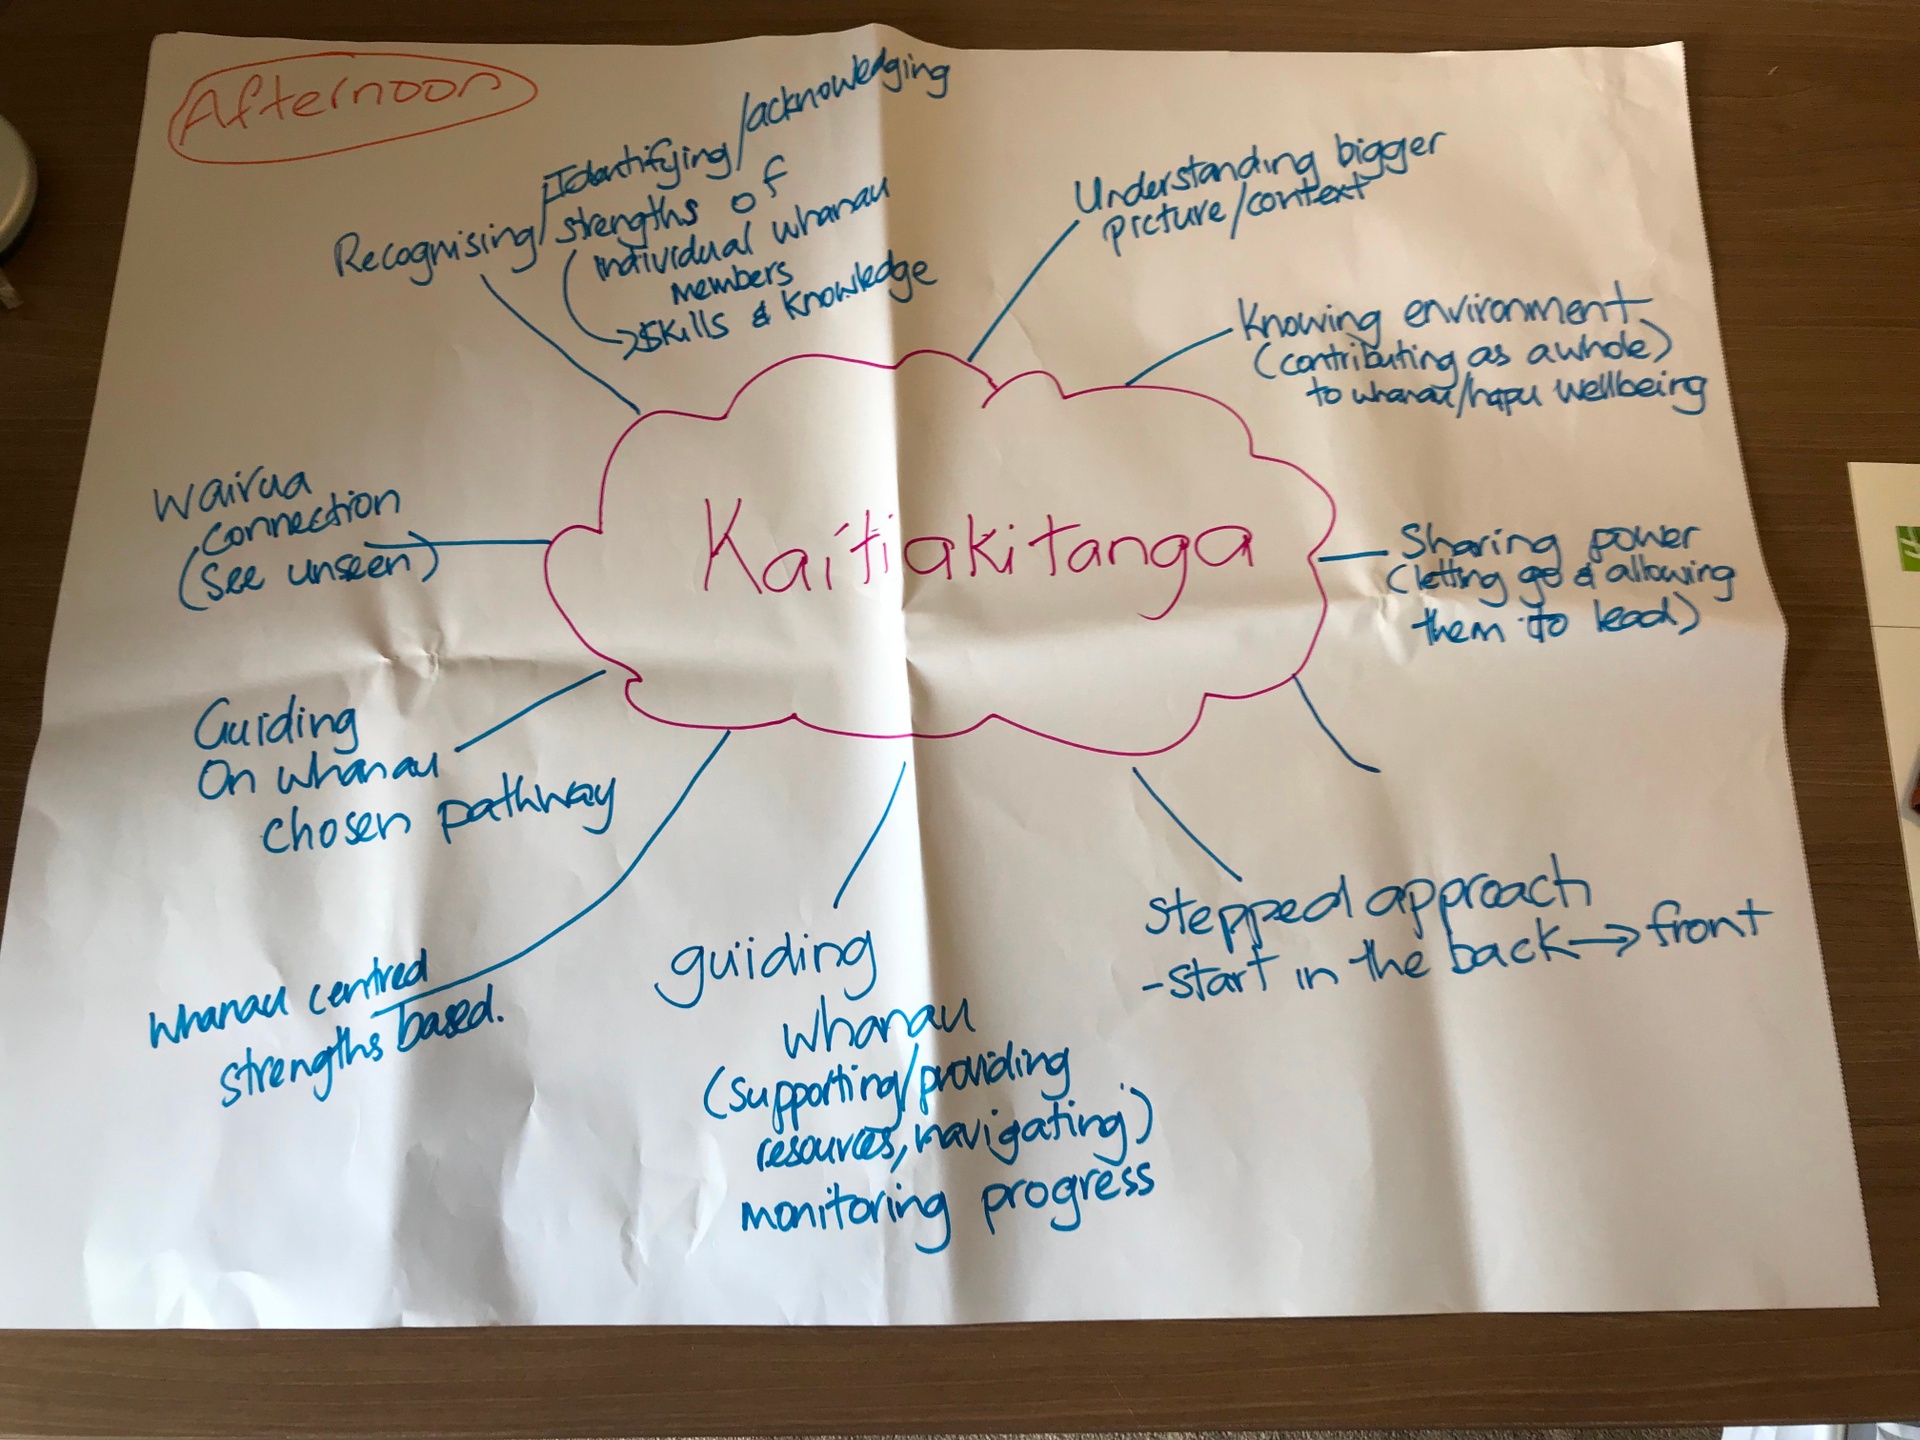 Afternoon
Recognising/Identifying/acknowledging
strengths of
individual whanau
members
→ skills & knowledge
Understanding bigger
picture/context
Knowing environment
(contributing as a whole)
to whanau/hapu wellbeing
Wairua
connection
(see unseen)
Kaitiakitanga
Sharing power
(letting go & allowing
them to lead)
Guiding
On whanau
chosen pathway
Whanau centred
strengths based.
guiding
whanau
(supporting/providing
resources, navigating)
monitoring progress
stepped approach
-start in the back → front